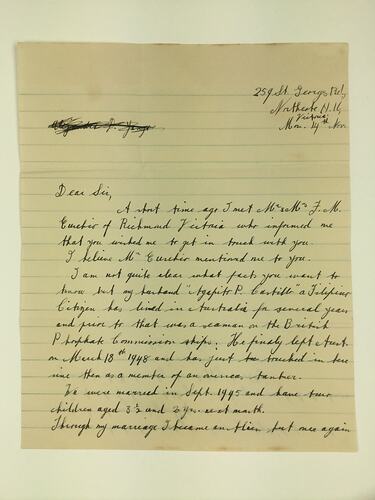 259 St. Georges Rd,
Northcote N.16
Victoria
Mon. 14th Nov
Dear Sir,
A short time ago I met Mr & Mrs J. M.
of Richmond Victoria who informed me
that you wished me to get in touch with you.
I believe Mr mentioned me to you.
I am not quite clear what facts you want to
know but my husband "Agapito P. Castillo" a Filipino
Citizen has lived in Australia for several years
and prior to that was a seaman on the British
Phosphate Commission ships. He finally left Aust.
on March 18th 1948 and has just been touched in here
since then as a member of an overseas tanker.
We were married in Sept. 1945 and have two
children aged 3½ and 2 yrs. next month.
Through my marriage I became an Alien but once again